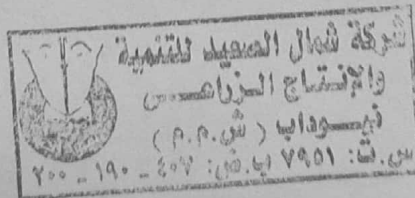 شركة شمال الصعيد للتنمية
والإنتاج الزراعــى
نيــوداب ( ش.م.م )
س.ت: ٧٩٥١ ب.ض: ٤٠٧ - ١٩٠ - ٢٠٠